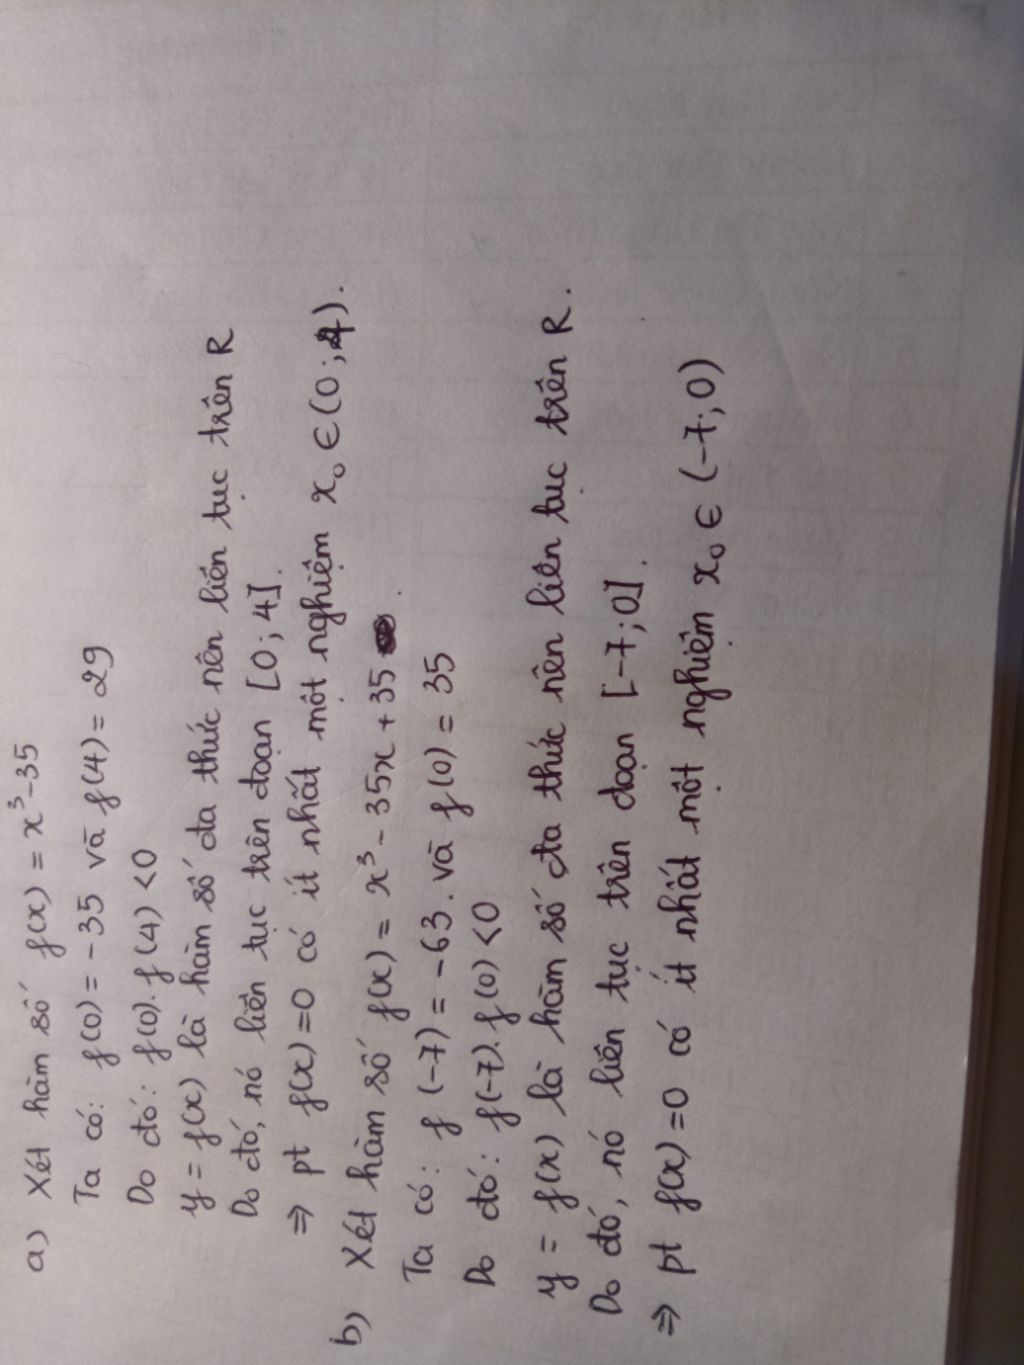 a) Xét hàm số f(x) = x³-35
Ta có: f(0) = -35 và f(4) = 29
Do đó: f(0).f(4) <0
y = f(x) là hàm số đa thức nên liên tục trên R
Do đó, nó liên tục trên đoạn [0; 4].
⇒ pt f(x)=0 có ít nhất một nghiệm x₀ ∈ (0; 4).
b) Xét hàm số f(x) = x³ - 35x + 35 .
Ta có: f (-7) = -63. và f(0) = 35
Do đó: f(-7).f(0) <0
y = f(x) là hàm số đa thức nên liên tục trên R.
Do đó, nó liên tục trên đoạn [-7;0].
⇒ pt f(x)=0 có ít nhất một nghiệm x₀ ∈ (-7;0)